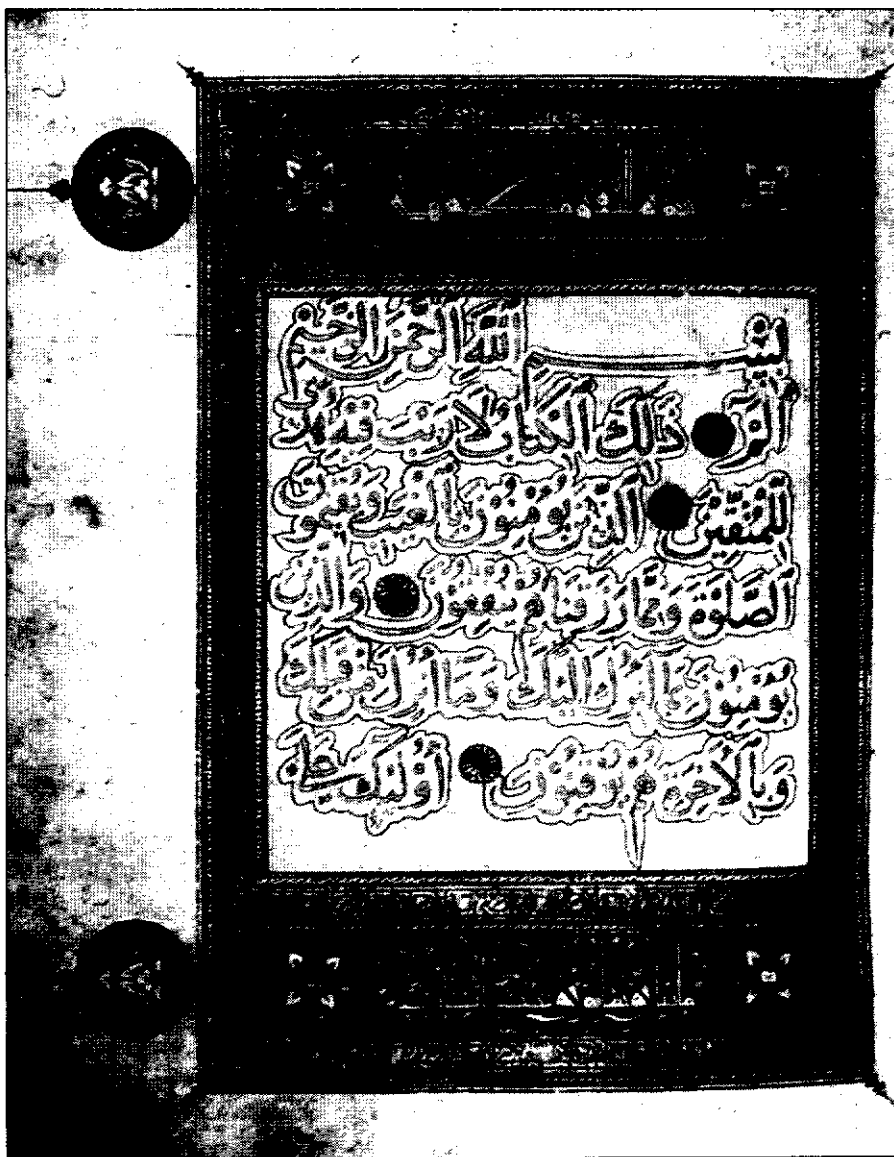 بِسْمِ اللَّهِ الرَّحْمَنِ الرَّحِيمِ
الٓمٓ ذَٰلِكَ الْكِتَابُ لَا رَيْبَ فِيهِ هُدًى
لِّلْمُتَّقِينَ الَّذِينَ يُؤْمِنُونَ بِالْغَيْبِ وَيُقِيمُونَ
الصَّلَوٰةَ وَمِمَّا رَزَقْنَاهُمْ يُنفِقُونَ وَالَّذِينَ
يُؤْمِنُونَ بِمَا أُنزِلَ إِلَيْكَ وَمَا أُنزِلَ مِن قَبْلِكَ
وَبِالْآخِرَةِ هُمْ يُوقِنُونَ أُوْلَٰئِكَ عَلَىٰ